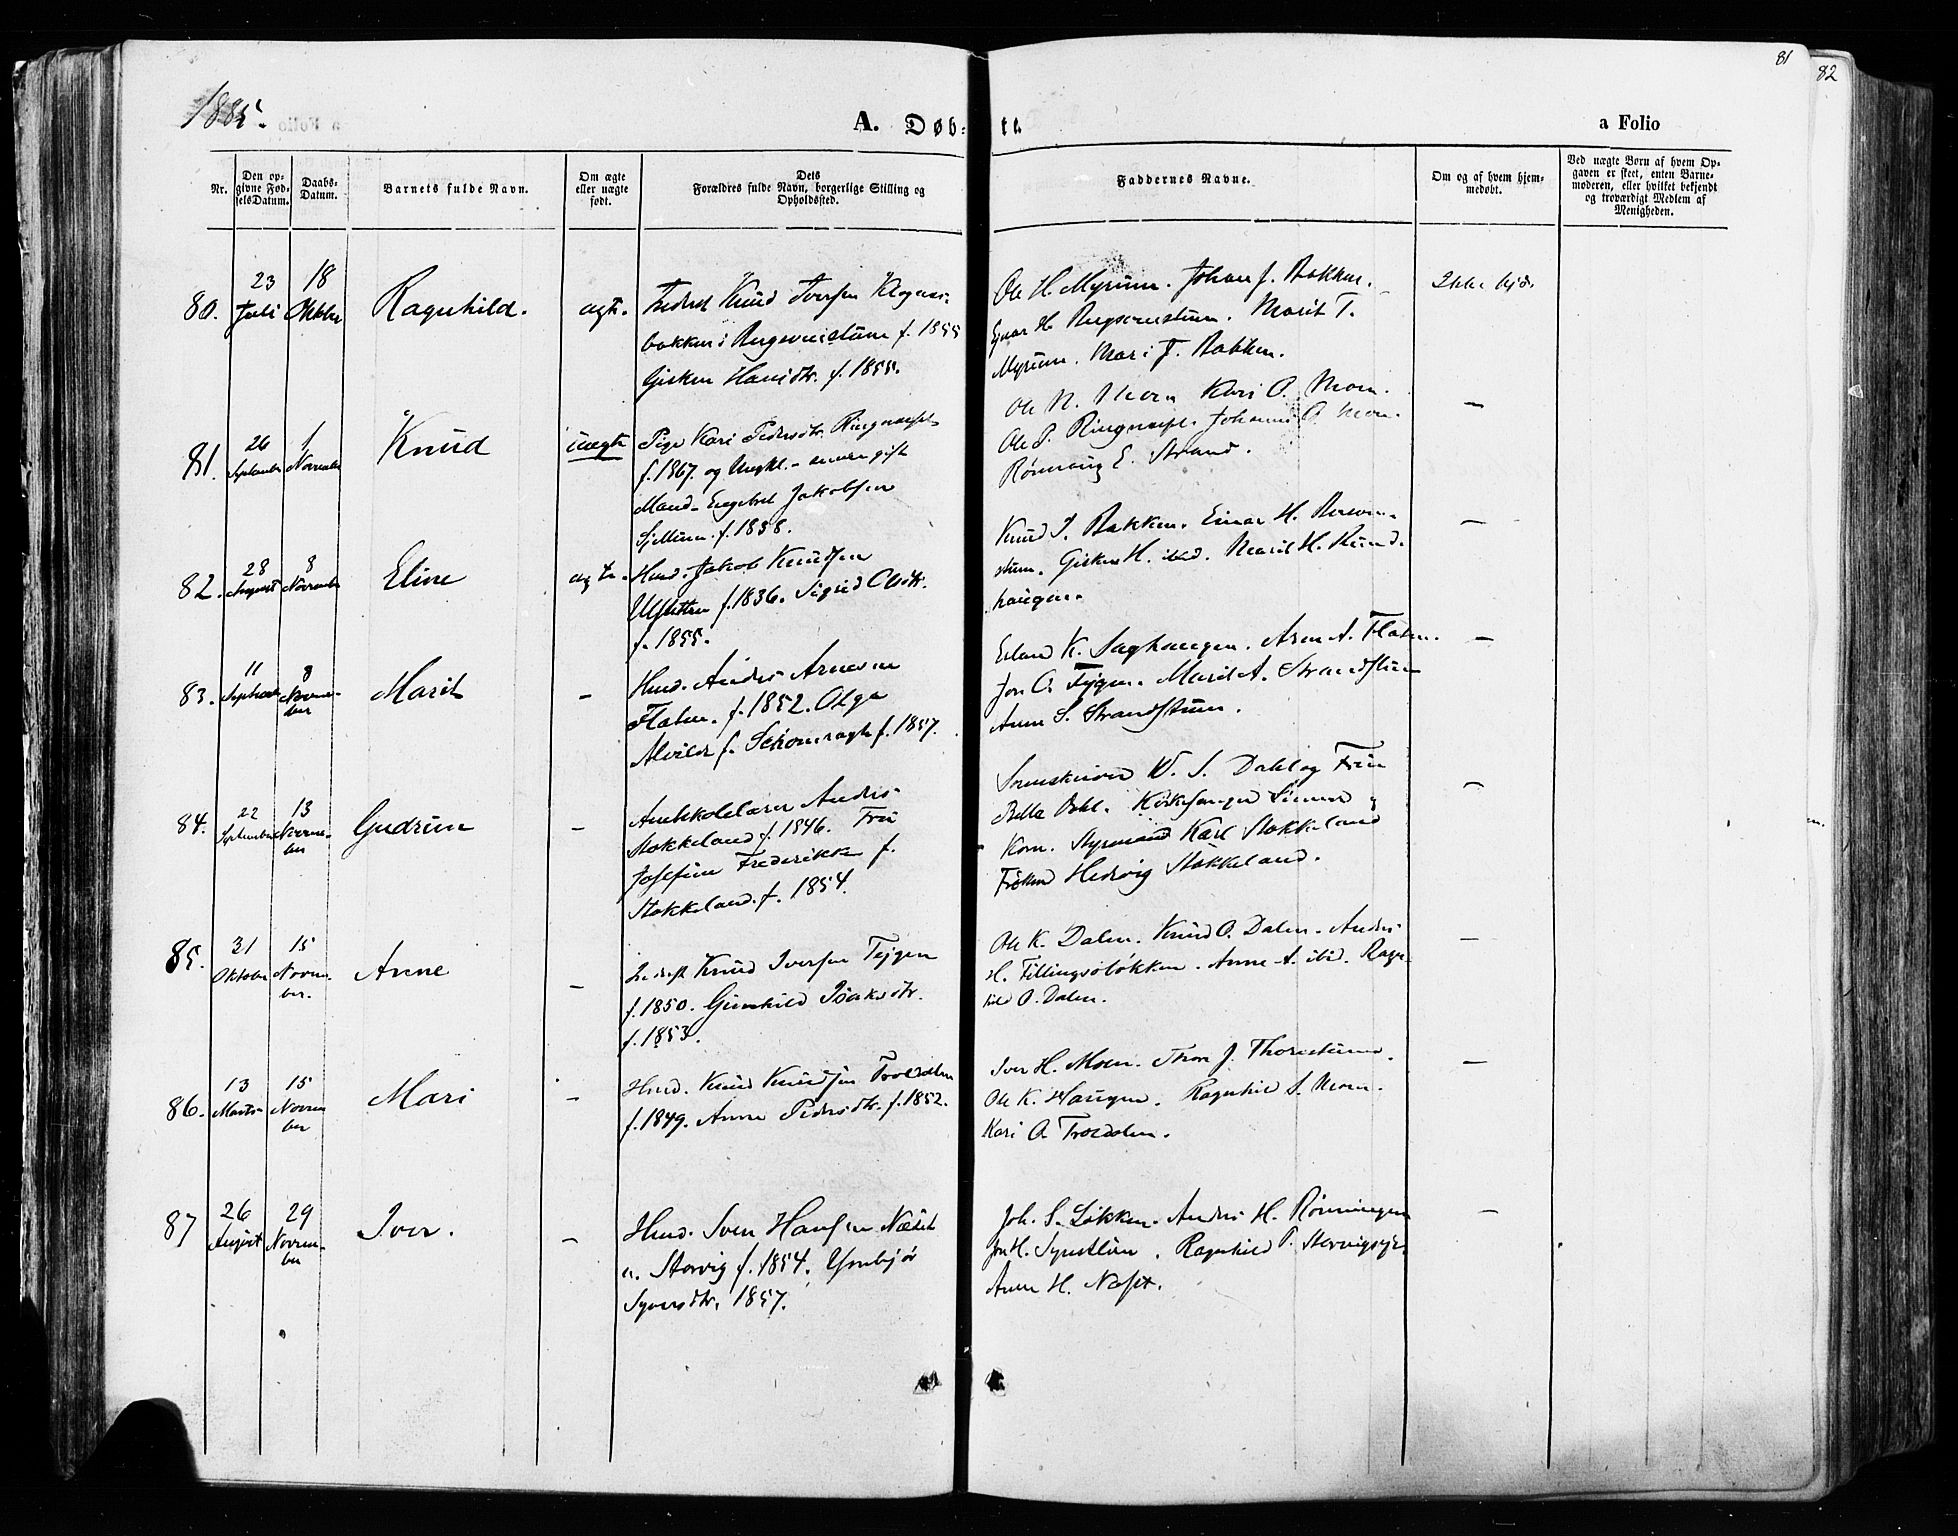 81
82
1885.
A. Døb- te.
a Folio
Nr.
Den opgivne FødselsDatum.
Daabs-Datum.
Barnets fulde Navn.
Om ægte eller uægte født.
Dets Forældres fulde Navn, borgerlige Stilling og Opholdssted.
Faddernes Navne.
Om og af hvem hjemmedøbt.
Ved uægte Børn af hvem Opgaven er skeet, enten Barnemoderen, eller hvilket bekjendt og troværdigt Medlem af Menigheden.
80.
23 Juli
18 Oktbr
Ragnhild.
ægte.
Knud Iversen
f. 1855
Gisken Hansdtr. f. 1855.
Ole H. Myrum. Johan J. Bakken.
Ejnar H. Marit T.
Myrum. Mari J. Bakken.
Ikke hjd.
81.
26 September
1 November
Knud
uægte
Pige Kari Pedersdtr. Ringnæset
f. 1867. og Ungkl. - senere gift
Mand - Engebret Jakobsen
f. 1858.
Ole N. Moen Kari O. Moen.
Ole P. Ringnæset. Johannes O. Moen.
Rønnaug E. Strand.
—
82.
28 August
8 November
Eline
ægte.
Hmd. Jakob Knudsen
f. 1836. Sigrid Olsdtr.
f. 1855.
Knud I. Bakken. Einar H.
Gisken H. ibid. Marit H.
haugen.
—
83.
11 September
8 November
Marit
—
Hmd. Anders Arnesen
Flaten. f. 1852. Olga
Alvilde f. f. 1857.
Erland K. Saghaugen. Arne A. Flaten.
Jon O. Marit A. Strandstuen
Anne S. Strandstuen.
—
84.
22 September
13 November
Gudrun
—
Amtskolelærer Anders
Stokkeland f. 1846. Fru
Josefine Frederikke f.
Stokkeland. f. 1854.
Sorenskriver W. S. Dahl og Frue
Betta Dahl. Kirkesanger
Kone. Styrmand Karl Stokkeland
Frøken Hedvig Stokkeland.
—
85.
31 Oktober
15 November.
Anne
—
Knud Iversen Tejgen
f. 1850. Gunhild Isaksdtr.
f. 1853.
Ole K. Dalen. Knud O. Dalen. Anders
H. Fillingsløkken. Anne A. ibid. Ragn-
hild O. Dalen.
—
86.
13 Marts
15 November
Mari
—
Hmd. Knud Knudsen Troldalen
f. 1849. Anne Pedersdtr. f. 1852.
Iver H. Moen. Thor J. Thorestuen.
Ole K. Haugen. Ragnhild S. Moen.
Kari O. Troldalen.
—
87
26 August
29 November
Iver.
—
Hmd. Sven Hansen
Storvig f. 1854. Ymbjør
Syversdtr. 1857.
Joh. S. Løkken. Anders H. Rønningen
Jon H. Ragnhild P.
Anne H. Næset.
—